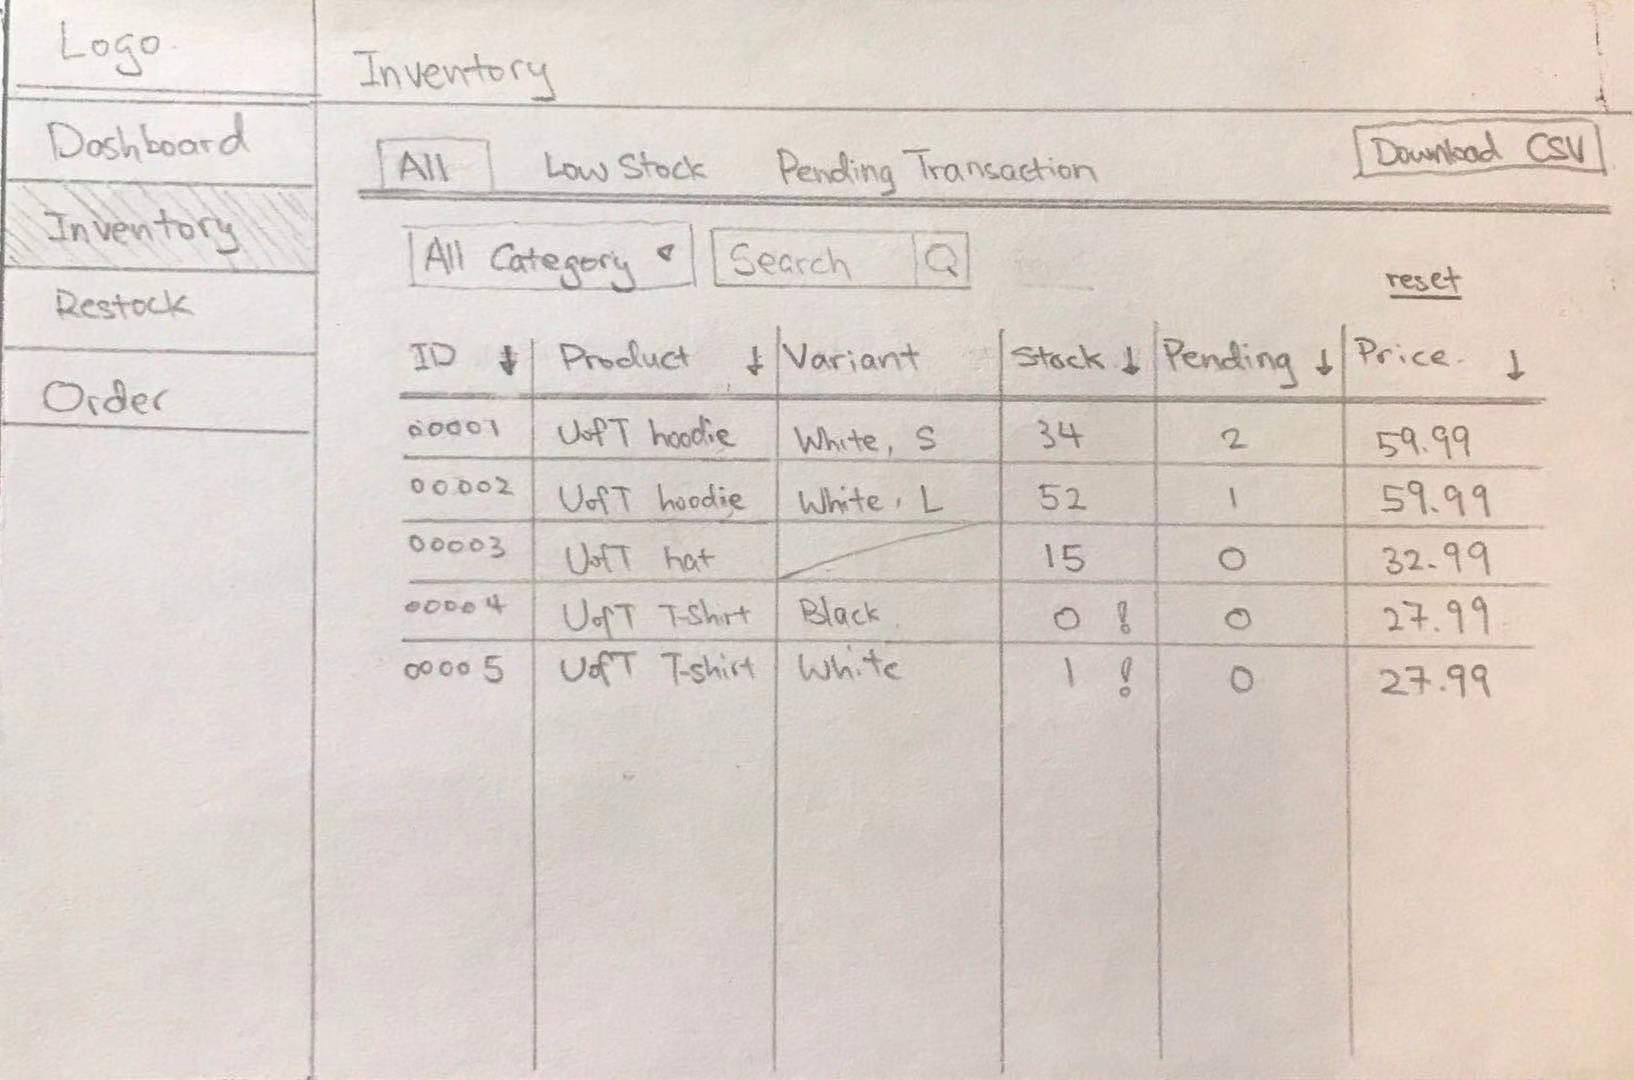 Logo
Inventory
Dashboard
Inventory
Restock
Order
All Low Stock Pending Transaction Download CSV
All Category Search
reset
ID ↓ Product ↓ Variant Stock ↓ Pending ↓ Price ↓
00001 UofT hoodie White, S 34 2 59.99
00002 UofT hoodie White, L 52 1 59.99
00003 UofT hat 15 0 32.99
00004 UofT T-Shirt Black 0 ! 0 27.99
00005 UofT T-shirt White 1 ! 0 27.99